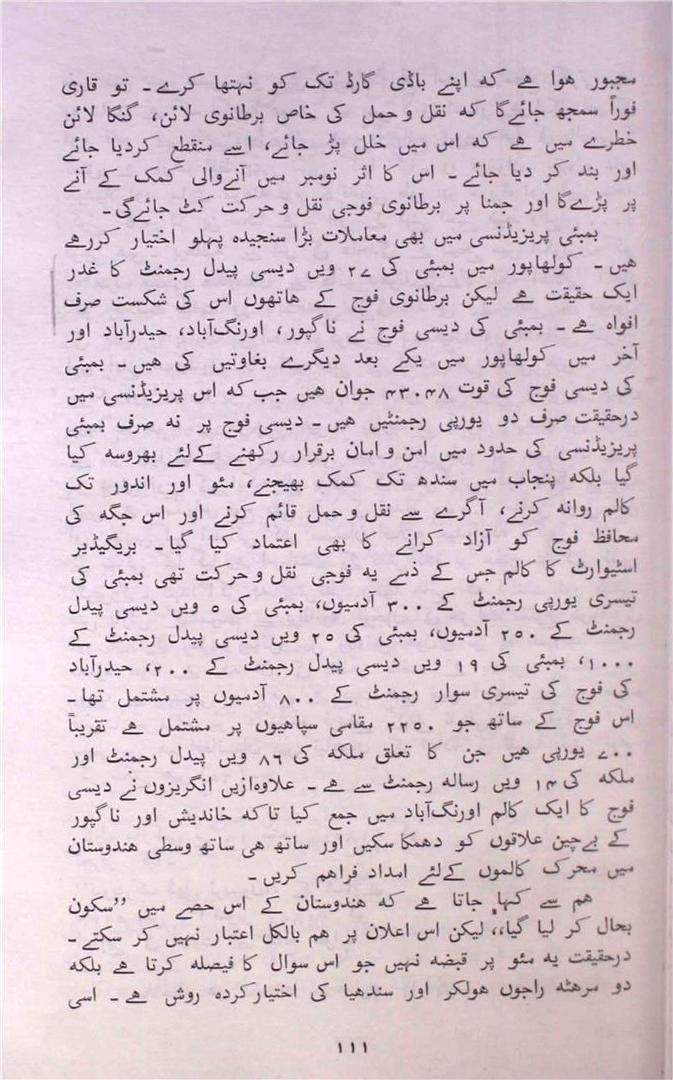 مجبور ہوا ہے کہ اپنے باڈی گارڈ تک کو نہتھا کرے ۔ تو قاری
فوراً سمجھ جائے گا کہ نقل و حمل کی خاص برطانوی لائن، گنگا لائن
خطرے میں ہے کہ اس میں خلل پڑ جائے، اسے منقطع کردیا جائے
اور بند کر دیا جائے ۔ اس کا اثر نومبر میں آنےوالی کمک کے آنے
پر پڑے گا اور جمنا پر برطانوی فوجی نقل و حرکت کٹ جائے گی ۔
بمبئی پریزیڈنسی میں بھی معاملات بڑا سنجیدہ پہلو اختیار کررہے
ہیں ۔ کولھاپور میں بمبئی کی ۲۷ ویں دیسی پیدل رجمنٹ کا غدر
ایک حقیقت ہے لیکن برطانوی فوج کے ہاتھوں اس کی شکست صرف
افواہ ہے ۔ بمبئی کی دیسی فوج نے ناگپور، اورنگ‌آباد، حیدرآباد اور
آخر میں کولھاپور میں یکے بعد دیگرے بغاوتیں کی ہیں ۔ بمبئی
کی دیسی فوج کی قوت ۴۳،۰۴۸ جوان ہیں جب کہ اس پریزیڈنسی میں
درحقیقت صرف دو یورپی رجمنٹیں ہیں ۔ دیسی فوج پر نہ صرف بمبئی
پریزیڈنسی کی حدود میں امن و امان برقرار رکھنے کےلئے بھروسہ کیا
گیا بلکہ پنجاب میں سندھ تک کمک بھیجنے، مئو اور اندور تک
کالم روانہ کرنے، آگرے سے نقل و حمل قائم کرنے اور اس جگہ کی
محافظ فوج کو آزاد کرانے کا بھی اعتماد کیا گیا ۔ بریگیڈیر
اسٹیوارٹ کا کالم جس کے ذمے یہ فوجی نقل و حرکت تھی بمبئی کی
تیسری یورپی رجمنٹ کے ۳۰۰ آدمیوں، بمبئی کی ۵ ویں دیسی پیدل
رجمنٹ کے ۲۵۰ آدمیوں، بمبئی کی ۲۵ ویں دیسی پیدل رجمنٹ کے
۱۰۰۰، بمبئی کی ۱۹ ویں دیسی پیدل رجمنٹ کے ۲۰۰، حیدرآباد
کی فوج کی تیسری سوار رجمنٹ کے ۸۰۰ آدمیوں پر مشتمل تھا ۔
اس فوج کے ساتھ جو ۲۲۵۰ مقامی سپاھیوں پر مشتمل ہے تقریباً
۷۰۰ یورپی ہیں جن کا تعلق ملکہ کی ۸۶ ویں پیدل رجمنٹ اور
ملکہ کی ۱۴ ویں رسالہ رجمنٹ سے ہے ۔ علاوہ‌ازیں انگریزوں نے دیسی
فوج کا ایک کالم اورنگ‌آباد میں جمع کیا تاکہ خاندیش اور ناگپور
کے بے‌چین علاقوں کو دھمکا سکیں اور ساتھ ہی ساتھ وسطی ہندوستان
میں محرک کالموں کےلئے امداد فراہم کریں ۔
ہم سے کہا جاتا ہے کہ ہندوستان کے اس حصے میں ’’سکون
بحال کر لیا گیا،، لیکن اس اعلان پر ہم بالکل اعتبار نہیں کر سکتے ۔
درحقیقت یہ مئو پر قبضہ نہیں جو اس سوال کا فیصلہ کرتا ہے بلکہ
دو مرہٹہ راجوں ہولکر اور سندھیا کی اختیارکردہ روش ہے ۔ اسی
۱۱۱